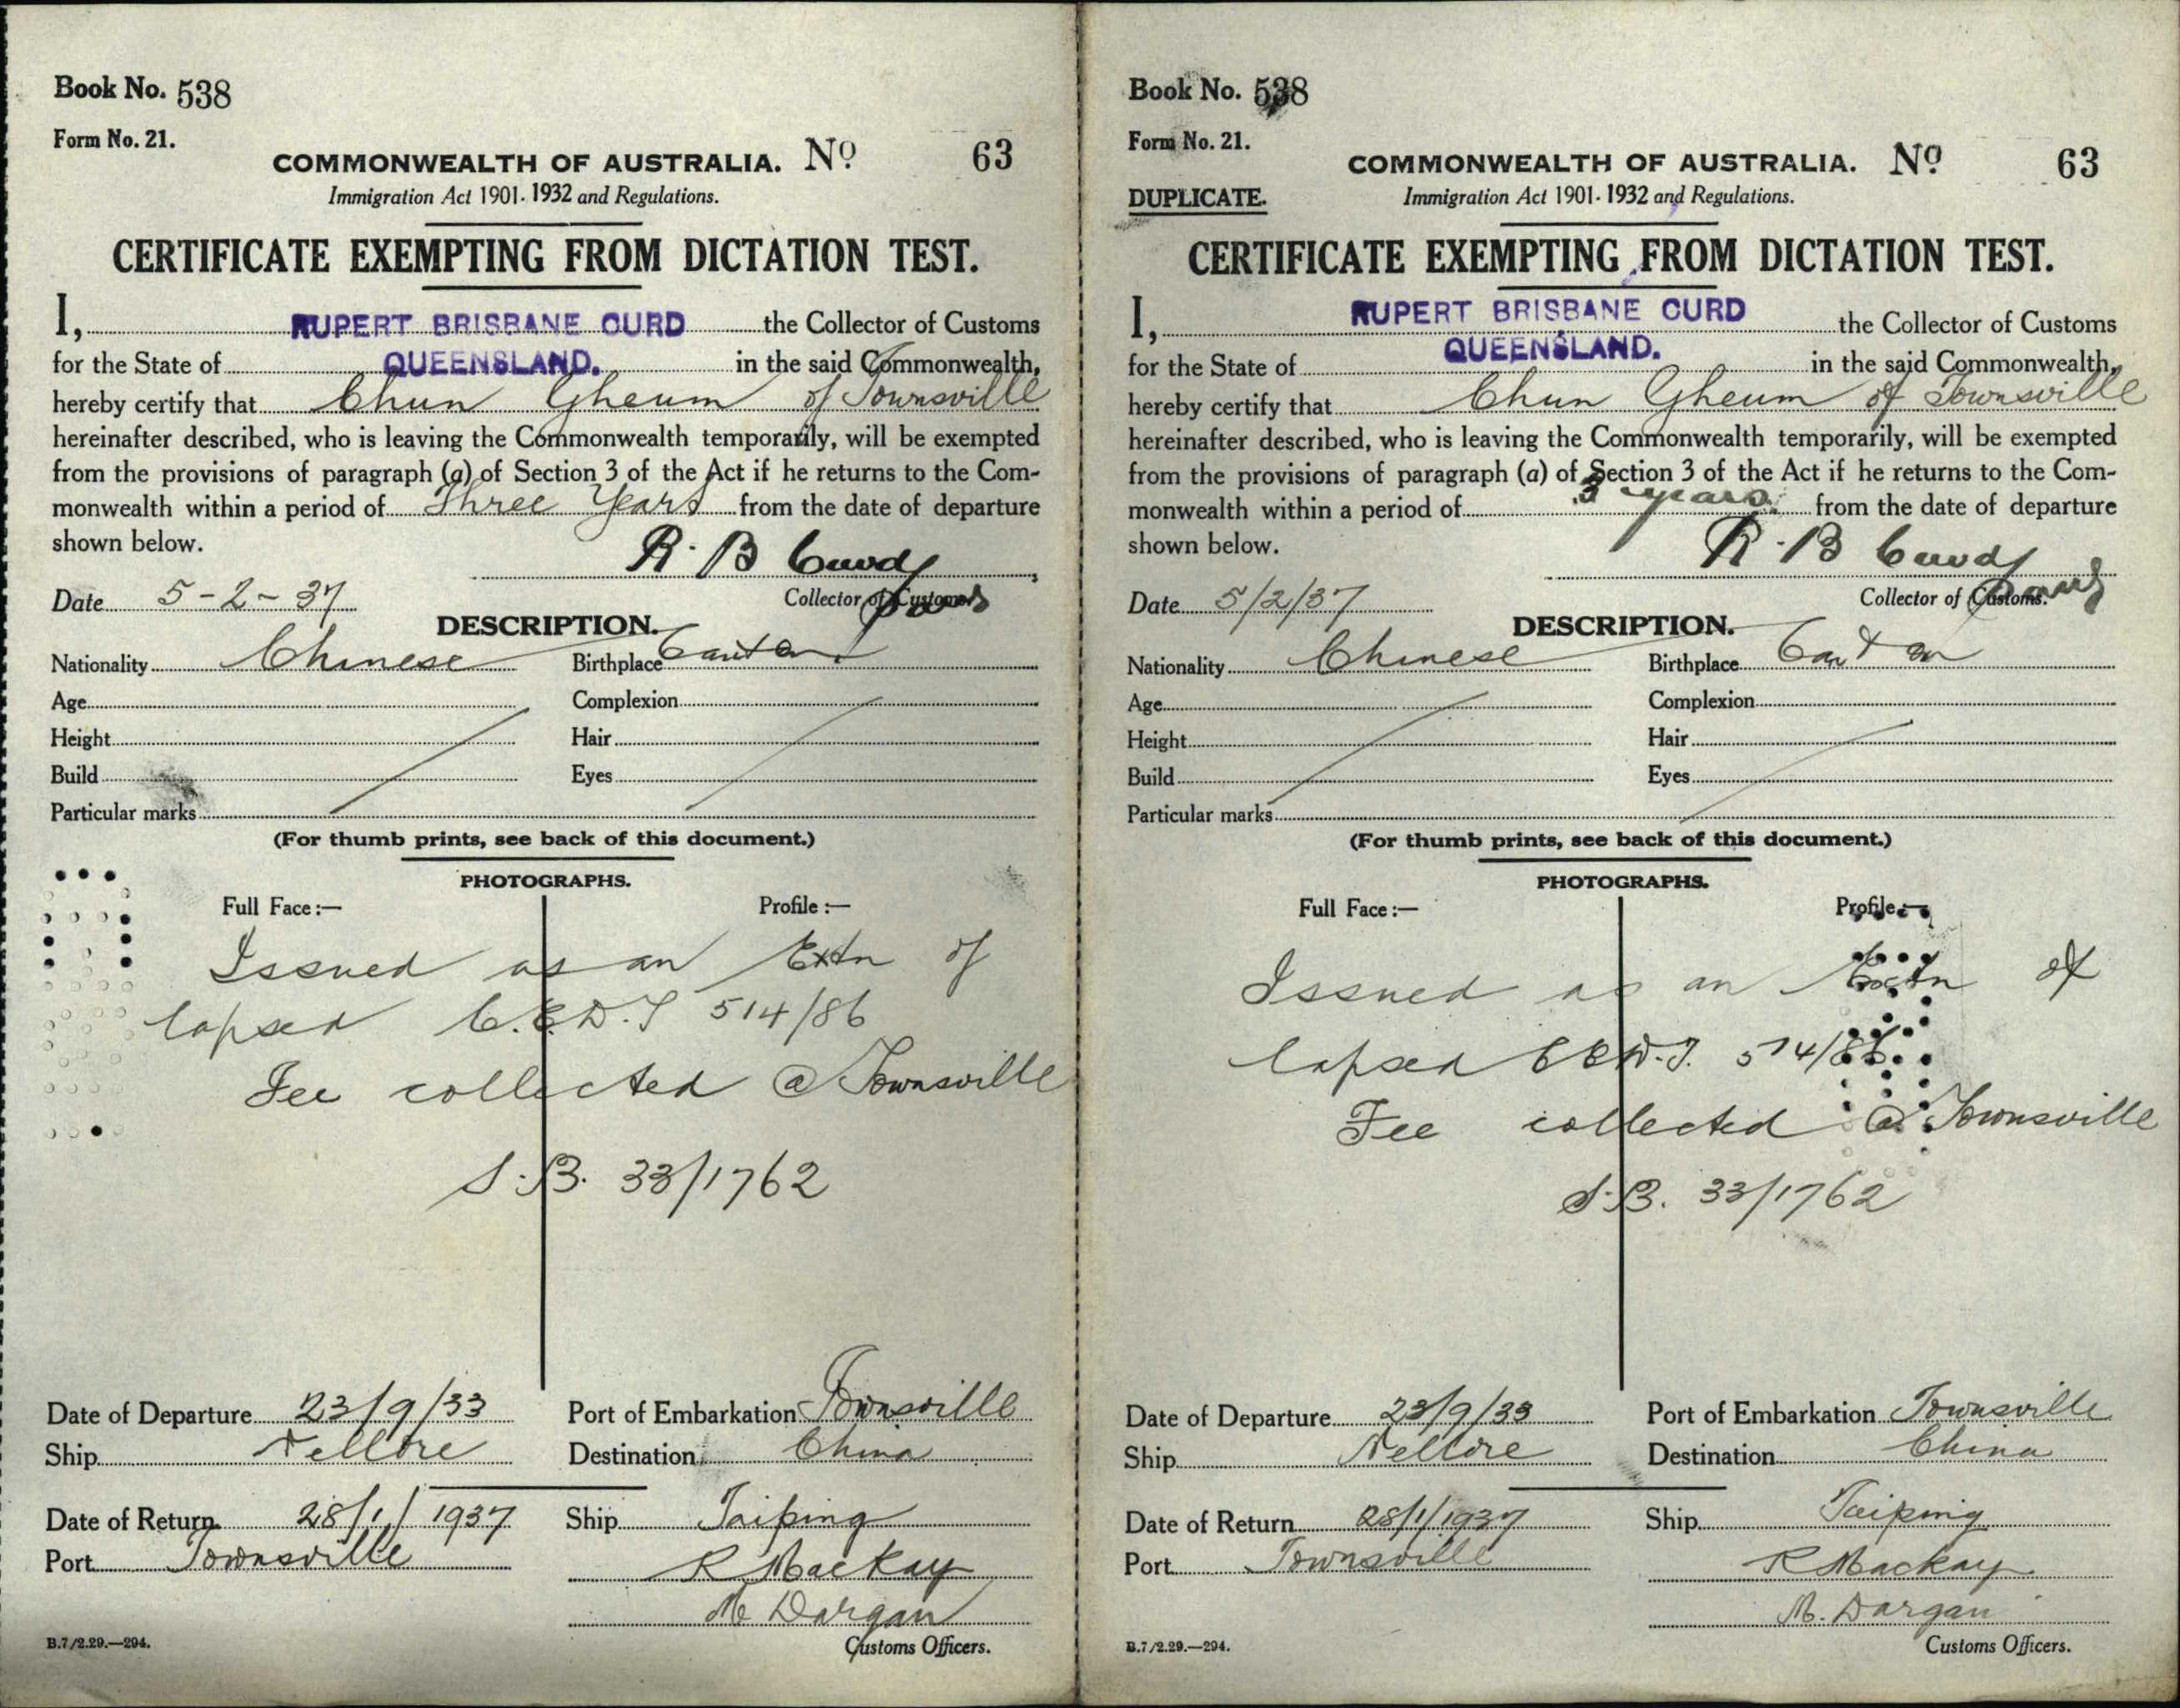 Book No. 538
Form No. 21.
COMMONWEALTH OF AUSTRALIA. No 63
Immigration Act 1901-1932 and Regulations.
CERTIFICATE EXEMPTING FROM DICTATION TEST.
I, RUPERT BRISBANE CURD the Collector of Customs
for the State of QUEENSLAND. in the said Commonwealth,
hereby certify that Chun Gheum of Townsville
hereinafter described, who is leaving the Commonwealth temporarily, will be exempted
from the provisions of paragraph (a) of Section 3 of the Act if he returns to the Com-
monwealth within a period of Three Years from the date of departure
shown below.
R. B Curd
Date 5-2-37 Collector of Customs
DESCRIPTION.
Nationality Chinese Birthplace Canton
Age Complexion
Height Hair
Build Eyes
Particular marks
(For thumb prints, see back of this document.)
PHOTOGRAPHS.
Full Face:— Profile:—
Issued as an Extn of
lapsed C.E.D.T 514/86
Fee collected @ Townsville
S.B. 33/1762
Date of Departure 23/9/33 Port of Embarkation Townsville
Ship Nellore Destination China
Date of Return 28/1/1937 Ship Taiping
Port Townsville R Mackay
M Dargan
B.7/2.29.—294. Customs Officers.
Book No. 538
Form No. 21.
COMMONWEALTH OF AUSTRALIA. No 63
DUPLICATE. Immigration Act 1901-1932 and Regulations.
CERTIFICATE EXEMPTING FROM DICTATION TEST.
I, RUPERT BRISBANE CURD the Collector of Customs
for the State of QUEENSLAND. in the said Commonwealth,
hereby certify that Chun Gheum of Townsville
hereinafter described, who is leaving the Commonwealth temporarily, will be exempted
from the provisions of paragraph (a) of Section 3 of the Act if he returns to the Com-
monwealth within a period of 3 years. from the date of departure
shown below.
R. B Curd
Date 5/2/37 Collector of Customs.
DESCRIPTION.
Nationality Chinese Birthplace Canton
Age Complexion
Height Hair
Build Eyes
Particular marks
(For thumb prints, see back of this document.)
PHOTOGRAPHS.
Full Face:— Profile:—
Issued as an Extn of
lapsed C E D.T. 514/86
Fee collected @ Townsville
S.B. 33/1762
Date of Departure 23/9/33 Port of Embarkation Townsville
Ship Nellore Destination China
Date of Return 28/1/1937 Ship Taiping
Port Townsville R Mackay
M. Dargan
B.7/2.29.—294. Customs Officers.